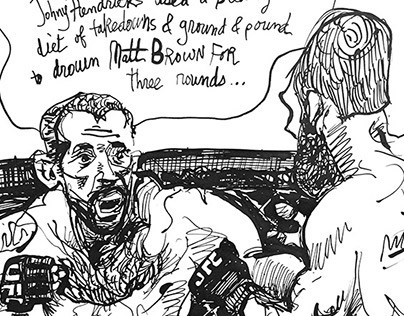 Johny Hendricks used a
diet of takedowns & ground & pound
to drown Matt BROWN FOR
three rounds...
UFC